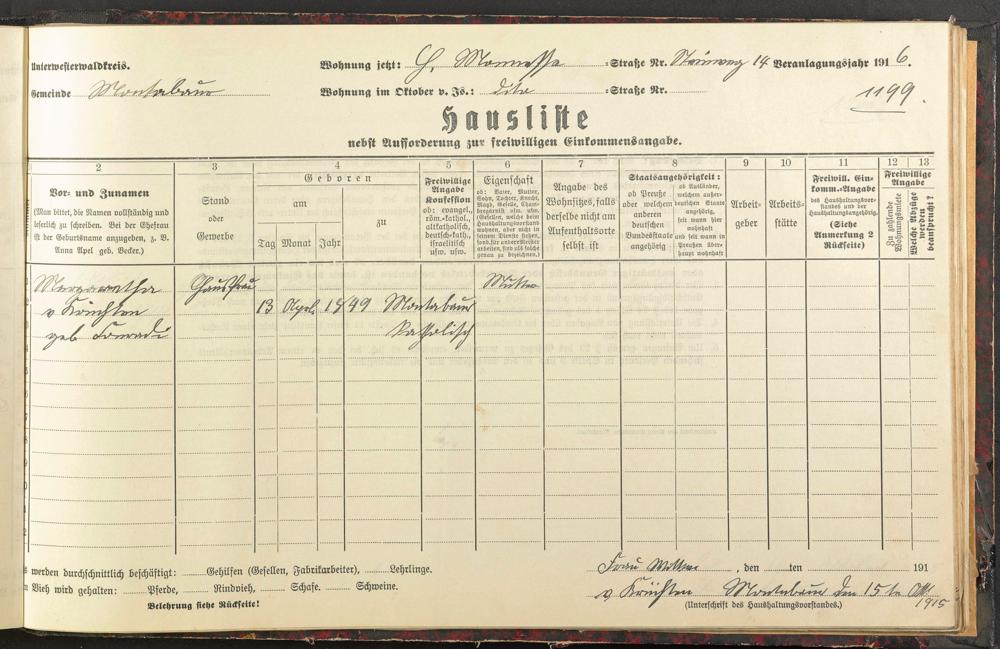 Unterwesterwaldkreis.
Wohnung jetzt: H. =Straße Nr. Steinweg 14 Veranlagungsjahr 1916.
Gemeinde Montabaur
Wohnung im Oktober v. Js.: dito =Straße Nr.
1199.
Hausliste
nebst Aufforderung zur freiwilligen Einkommensangabe.
2 3 4 5 6 7 8 9 10 11 12 13
Vor- und Zunamen
(Man bittet, die Namen vollständig und
leserlich zu schreiben. Bei der Ehefrau
ist der Geburtsname anzugeben, z. B.
Anna Apel geb. Becker.)
Stand
oder
Gewerbe
Geboren
am
zu
Tag Monat Jahr
Freiwillige
Angabe
Konfession
ob: evangel.,
röm.-kathol.,
altkatholisch,
deutsch-kath.,
israelitisch
usw. usw.
Eigenschaft
ob: Vater, Mutter,
Sohn, Tochter, Knecht,
Magd, Geselle, Cham-
bregarnist usw. usw.
(Gesellen, welche beim
Haushaltungsvorstand
wohnen, aber nicht in
seinem Dienste stehen,
sond. für andere Meister
arbeiten, sind als solche
genau zu bezeichnen.)
Angabe des
Wohnsitzes, falls
derselbe nicht am
Aufenthaltsorte
selbst ist
Staatsangehörigkeit:
ob Preuße
oder welchem
anderen
deutschen
Bundesstaate
angehörig
ob Ausländer,
welchem außer-
deutschen Staate
angehörig,
seit wann hier
wohnhaft
und seit wann in
Preußen über-
haupt wohnhaft
Arbeit-
geber
Arbeits-
stätte
Freiwill. Ein-
komm.-Angabe
des Haushaltungsvor-
standes und der
Haushaltungsangehörig.
(Siehe
Anmerkung 2
Rückseite)
Freiwillige
Angabe
Zu zahlende
Wohnungsmiete
Welche Abzüge
werden
beansprucht?
Margaretha Hausfrau Mutter
v Krüchten 13 April 1849 Montabaur
geb Conradi Katholisch
werden durchschnittlich beschäftigt: Gehilfen (Gesellen, Fabrikarbeiter), Lehrlinge.
Vieh wird gehalten: Pferde, Rindvieh, Schafe. Schweine.
Belehrung siehe Rückseite!
Frau , den ten 191
v Krüchten Montabaur den 15 te Okt
1915
(Unterschrift des Haushaltungsvorstandes.)